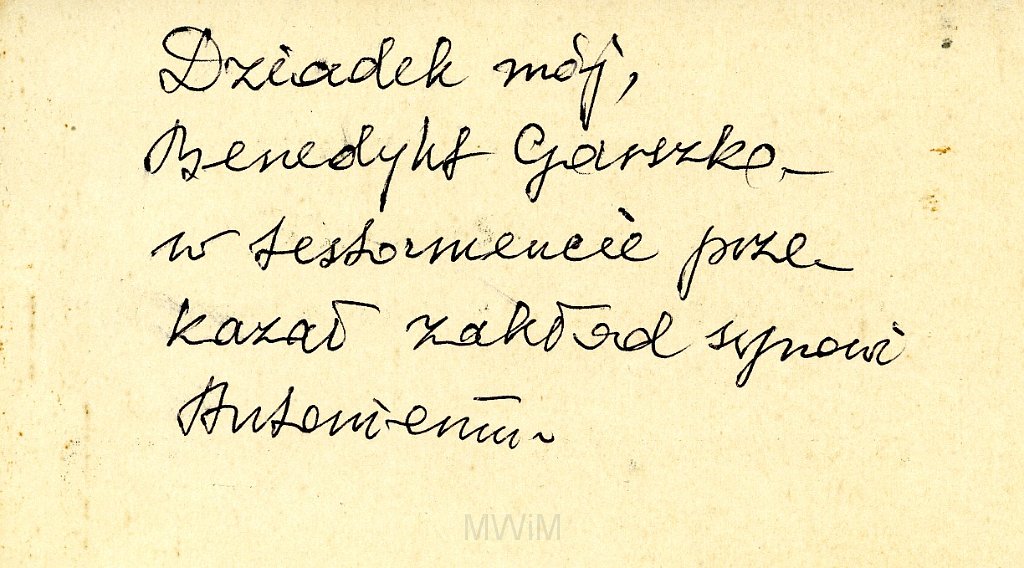 Dziadek mój,
Benedykt Garszka
w testamencie prze-
kazał zakład synowi
Antoniemu
MWiM